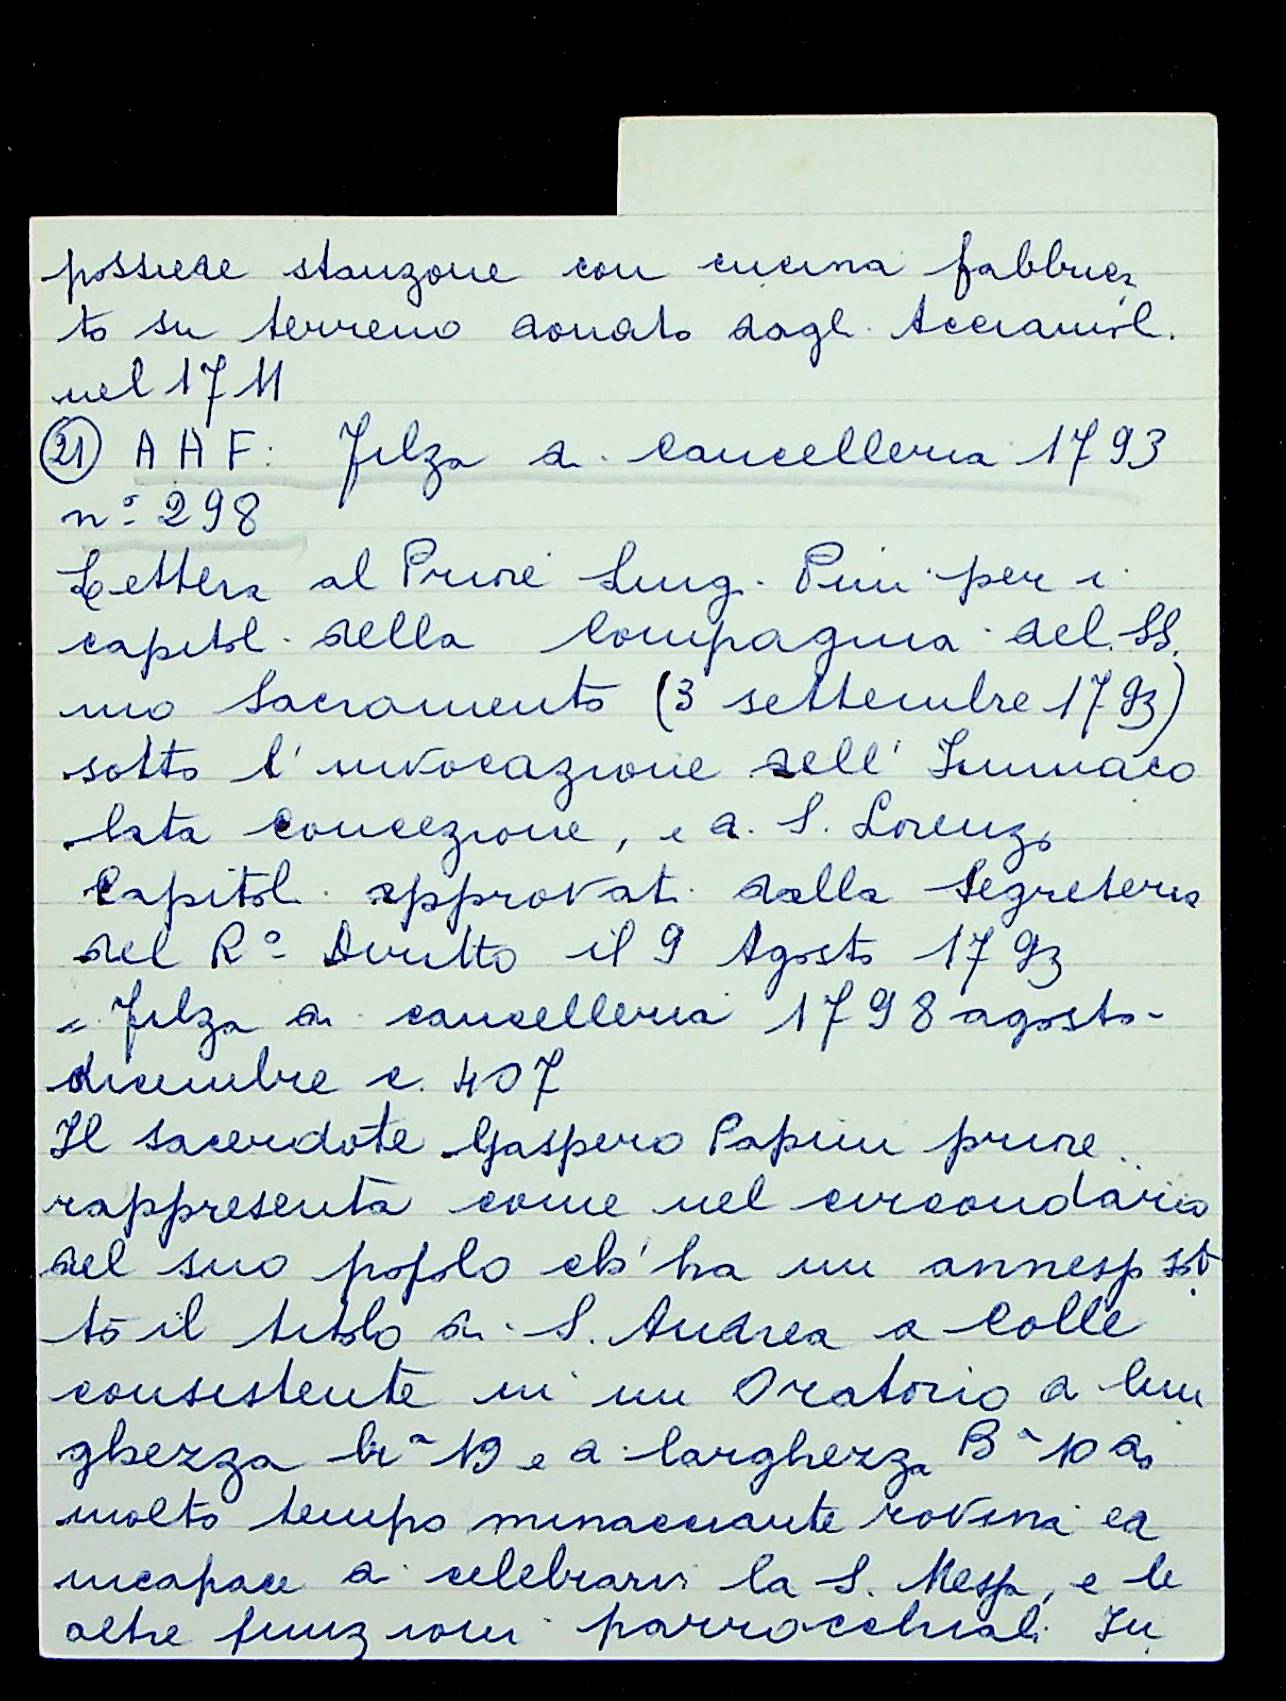 possiede stanzone con cucina fabbrica
to su terreno donato dagli Acciaioli
nel 1711
21 A A F: Filza di Cancelleria 1793
n° 298
Lettera al Priore Luig. Pini per i
capitoli della Compagnia del SS.
mo Sacramento (3 settembre 1793)
sotto l'invocazione dell' Immaco
lata Concezione, e di S. Lorenzo
Capitoli approvati dalla Segreteria
del R° Diritto il 9 Agosto 1793
= Filza di cancelleria 1798 agosto-
dicembre c. 407
Il sacerdote Gaspero Papini priore
rappresenta come nel circondario
del suo popolo ch'ha un annesso sot
to il titolo di S. Andrea a Colle
consistente in un Oratorio di lun
ghezza br.a 19 e di larghezza B.a 10 da
molto tempo minacciante rovina ed
incapace di celebrarvi la S. Messa, e le
altre funzioni parrocchiali. In